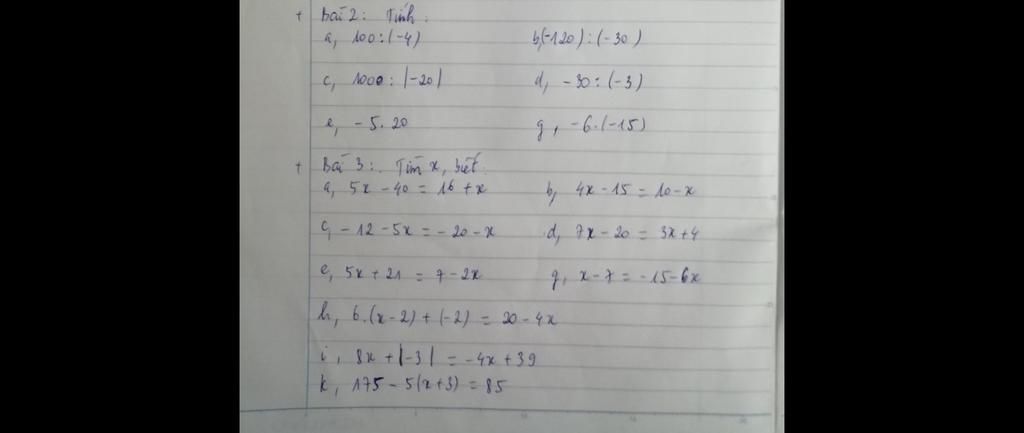 + Bài 2: Tính:
a, 100:(-4) b,(-120):(-30)
c, 1000: |-20| d, -30:(-3)
e, -5.20 g, -6.(-15)
+ Bài 3: Tìm x, biết
a, 5x - 40 = 16 + x b, 4x - 15 = 10 - x
c, -12 - 5x = -20 - x d, 7x - 20 = 3x + 4
e, 5x + 21 = 7 - 2x g, x - 7 = -15 - 6x
h, 6.(x-2) + (-2) = 20 - 4x
i, 8x + |-3| = -4x + 39
k, 175 - 5(x+3) = 85